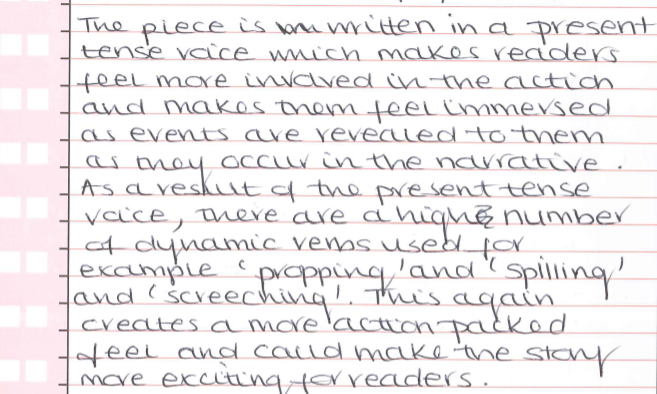 The piece is written in a present
tense voice which makes readers
feel more involved in the action
and makes them feel immersed
as events are revealed to them
as they occur in the narrative.
As a result of the present tense
voice, there are a high number
of dynamic verbs used for
example 'propping' and 'spilling'
and 'screeching'. This again
creates a more action packed
feel and could make the story
more exciting for readers.